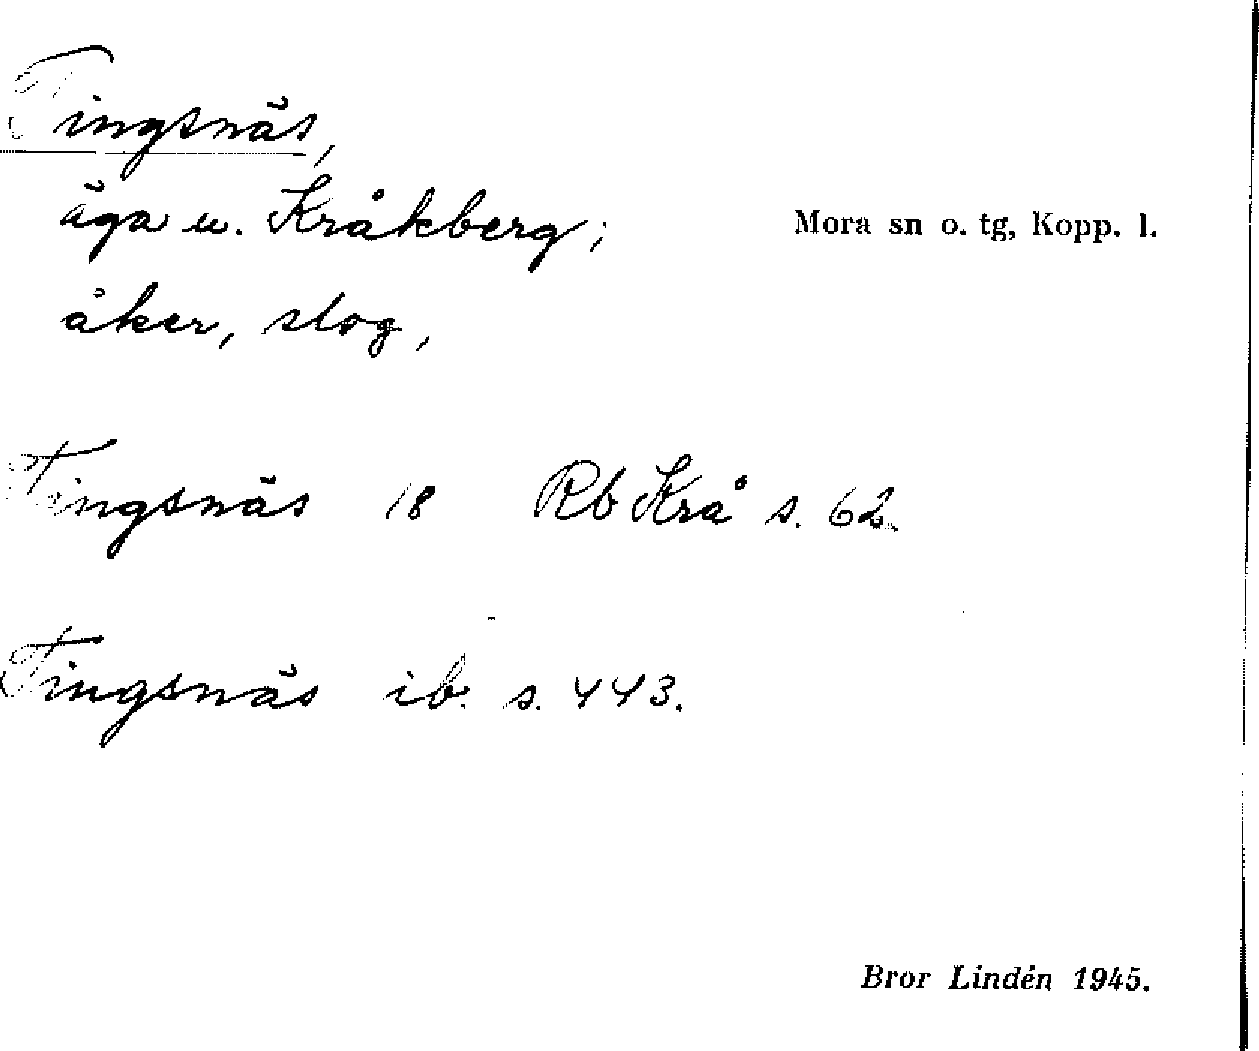 Tingsnäs,
äga u. Kråkberg;
Mora sn o. tg, Kopp. l.
åker, slog,
Tingsnäs 18 Rb Krå s. 62.
Tingsnäs ib. s. 443.
Bror Lindén 1945.